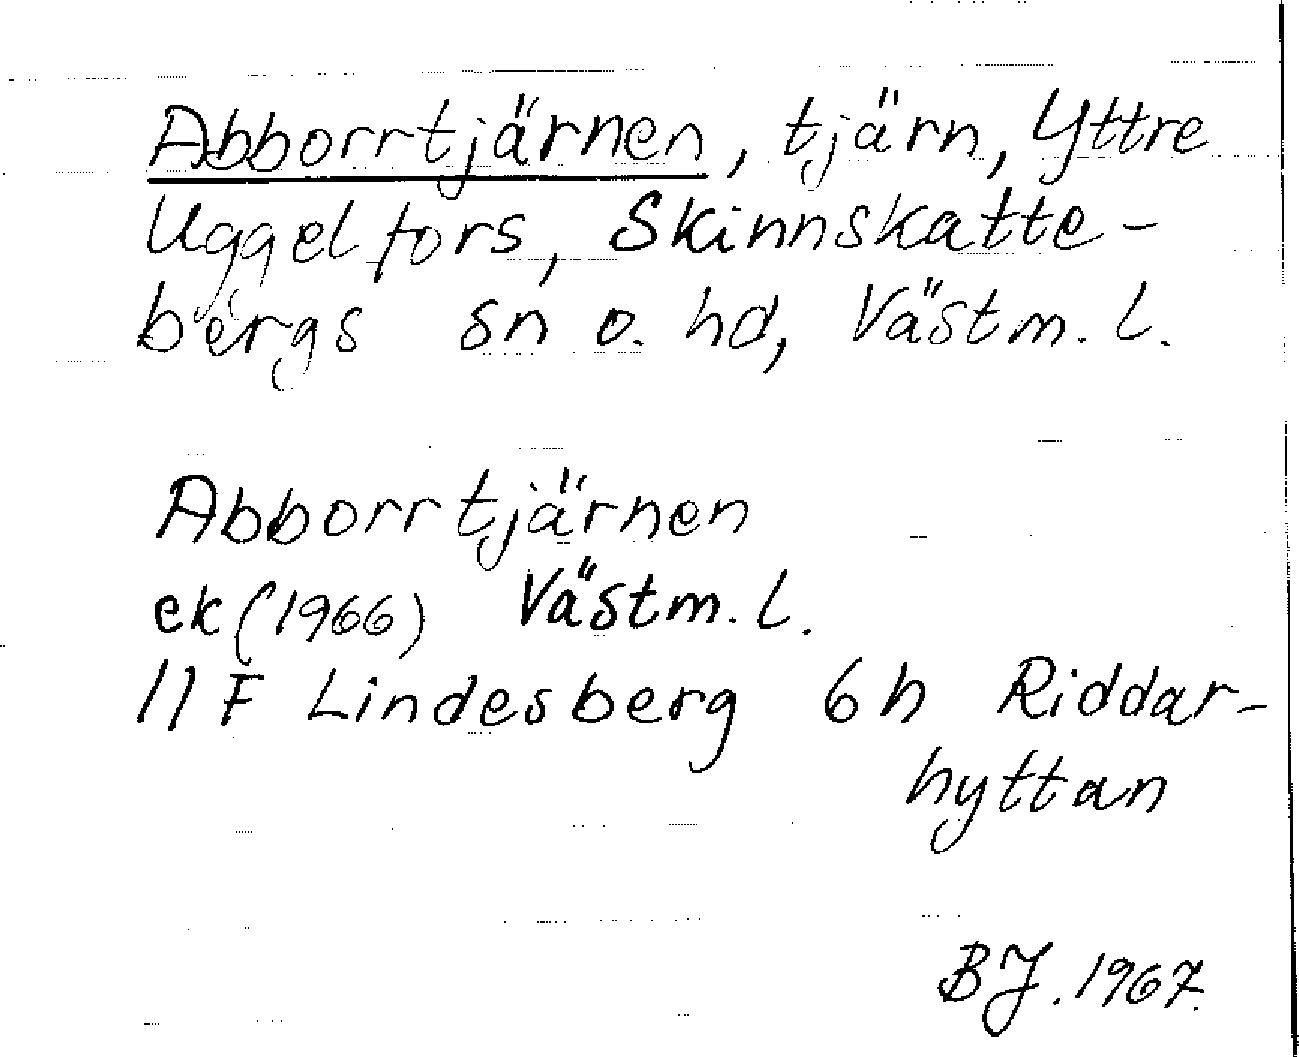 Abborrtjärnen, tjärn, Yttre
Uggelfors, Skinnskatte-
bergs sn o. hd, Västm. l.
Abborrtjärnen
ek (1966) Västm. l.
11 F Lindesberg 6h Riddar-
hyttan
BJ. 1967.